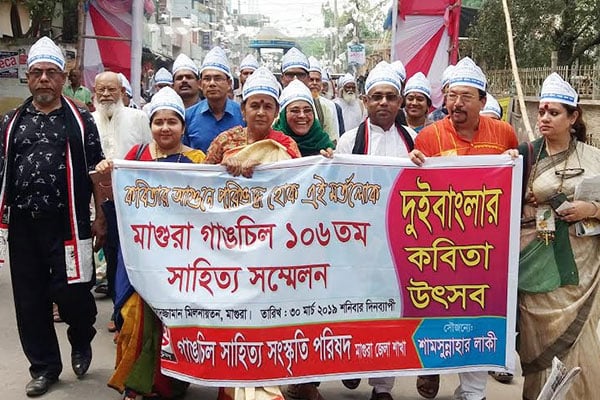 কবিতার আগুনে পরিশুদ্ধ হোক এই মর্তলোক
মাগুরা গাঙচিল ১০৬তম
সাহিত্য সম্মেলন
মিলনায়তন, মাগুরা। তারিখ : ৩০ মার্চ ২০১৯ শনিবার দিনব্যাপী
গাঙচিল সাহিত্য সংস্কৃতি পরিষদ মাগুরা জেলা শাখা
দুইবাংলার
কবিতা
উৎসব
সৌজন্যে:
শামসুন্নাহার লাকী